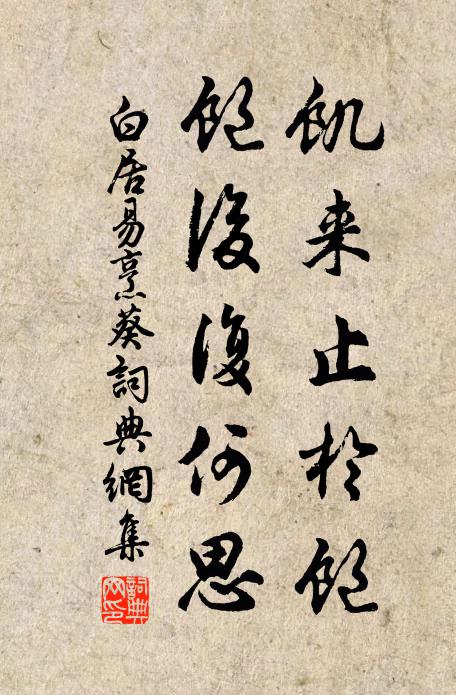 飢来止於飽
飽後復何思
白居易烹葵詞典網集
詞典网印